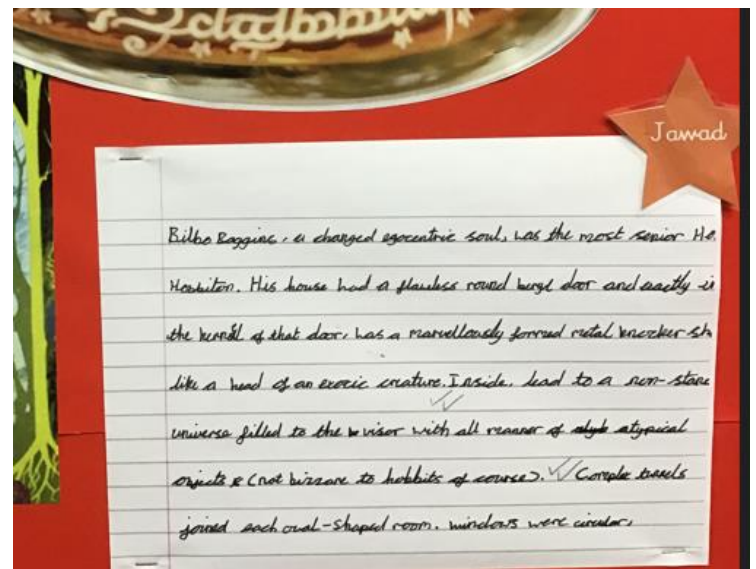 Jawad
Bilbo Baggins, a changed egocentric soul, was the most senior Ho
Hobbiton. His house had a flawless round beryl door and exactly in
the kernal of that door, was a marvellously formed metal knocker sh
like a head of an exotic creature. Inside, lead to a non-stone
universe filled to the visor with all manner of atypical
objects (not bizzare to hobbits of course). Complex tunnels
joined each oval-shaped room. windows were circular,